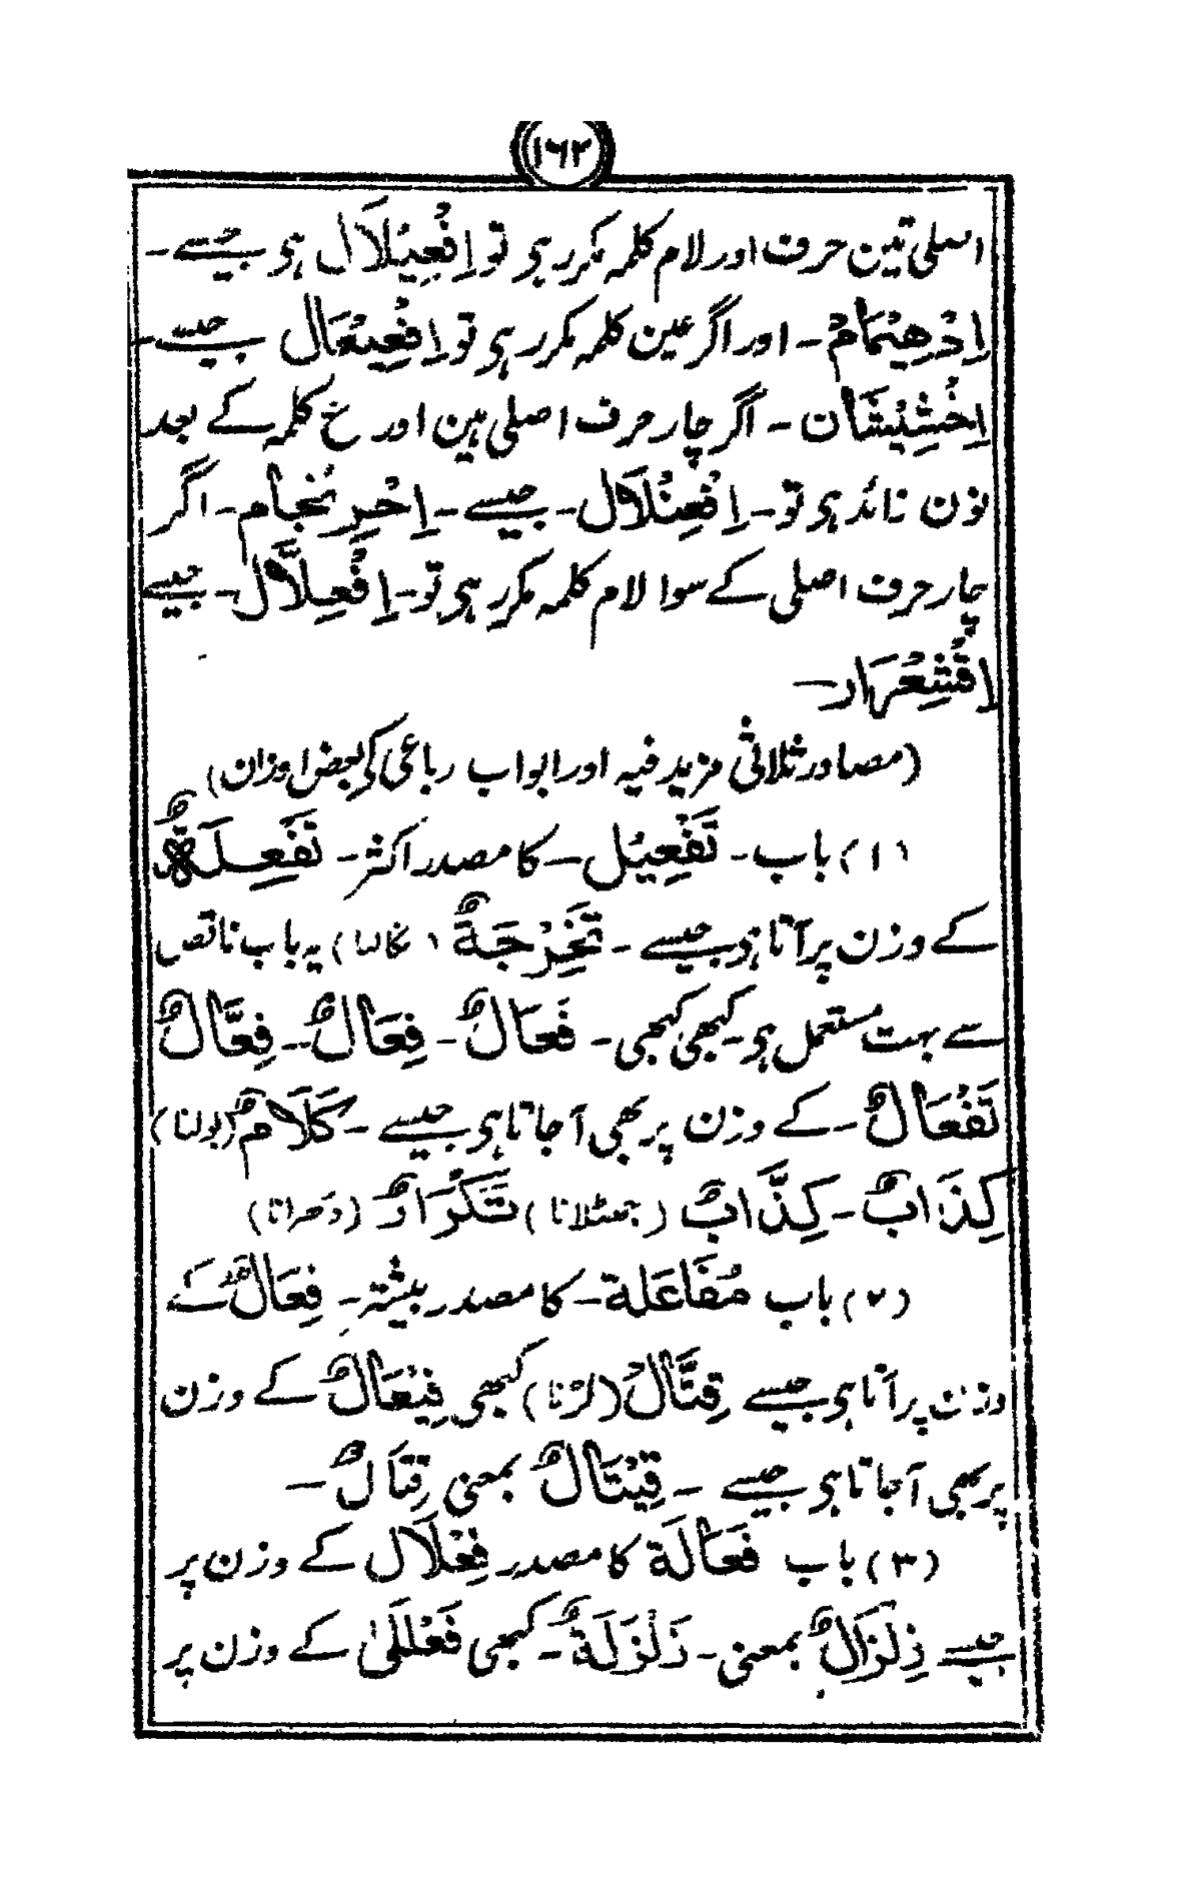 ۱۶۲
اصلی تین حرف اور لام کلمہ مکرر ہی تو اِفْعِیْلَال ہی جیسے۔
اِدْھِیْمَامْ۔ اور اگر عین کلمہ مکرر ہی تو اِفْعِیْعَال جیسے۔
اِخْشِیْشَان۔ اگر چار حرف اصلی ہین اور خ کلمہ کے بعد
نون زائد ہی تو۔ اِفْعِنْلَال۔ جیسے۔ اِحْرِنْجَام۔ اگر
چار حرف اصلی کے سوا لام کلمہ مکرر ہی تو۔ اِفْعِلَّال۔ جیسے
اِقْشِعْرَار۔
(مصادر ثلاثی مزید فیہ اور ابواب رباعی کی بعض اوزان)
(۱) باب۔ تَفْعِیْل۔ کا مصدر اکثر۔ تَفْعِلَةٌ
کے وزن پر آتا ہی جیسے۔ تَخْرِجَةٌ (نکالنا) یہ باب ناقص
سے بہت مستعمل ہی۔ کبھی کبھی۔ فَعَالٌ۔ فِعَالٌ۔ فِعَّالٌ
تَفْعَالٌ۔ کے وزن پر بھی آجاتا ہی جیسے۔ کَلَامٌ (بولنا)
کِذَابٌ۔ کِذَّابٌ (جھٹلانا) تَکْرَارٌ (دھرانا)
(۲) باب مُفَاعَلة۔ کا مصدر بیشتر۔ فِعَالٌ کے
وزن پر آتا ہی جیسے قِتَّالٌ (لڑنا) کبھی فِیْعَالٌ کے وزن
پر بھی آجاتا ہی جیسے۔ قِیْتَالٌ بمعنی قِتَالٌ۔
(۳) باب فَعَالَة کا مصدر فِعْلَال کے وزن پر
جیسے زِلْزَالٌ بمعنی۔ زَلْزَلَةٌ۔ کبھی فَعْلَلیٰ کے وزن پر